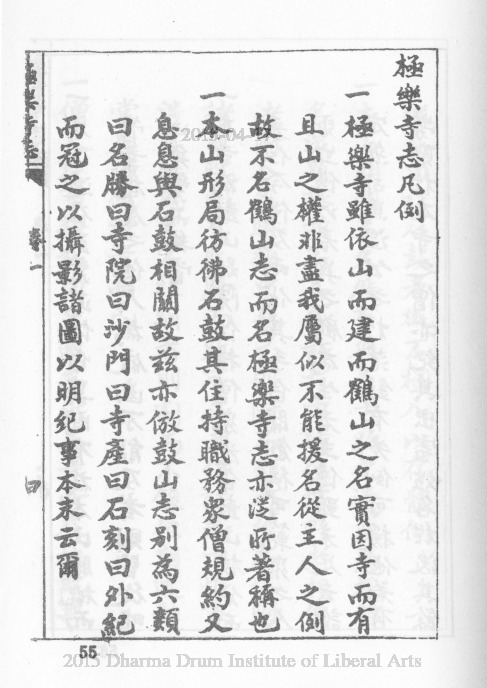 極樂寺志凡例
一極樂寺雖依山而建而鶴山之名實因寺而有
且山之權非盡我屬似不能援名從主人之例
故不名鶴山志而名極樂寺志亦從所著稱也
一本山形局彷彿石鼓其住持職務眾僧規約又
息息與石鼓相關故茲亦倣鼓山志別為六類
曰名勝曰寺院曰沙門曰寺產曰石刻曰外紀
而冠之以攝影諸圖以明紀事本末云爾
極樂寺志
卷一
55
2015 Dharma Drum Institute of Liberal Arts